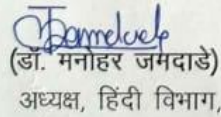 (डॉ. मनोहर जमदाडे)
अध्यक्ष, हिंदी विभाग,